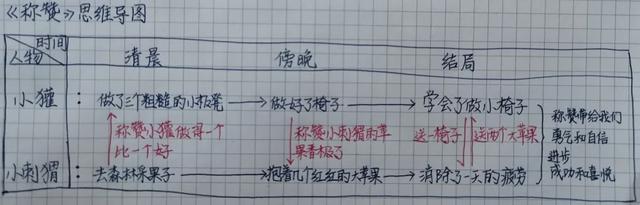 《称赞》思维导图
时间
人物
清晨
傍晚
结局
小獾：
做了三个粗糙的小板凳
做好了椅子
学会了做小椅子
称赞小獾做得一个
比一个好
称赞小刺猬的苹
果香极了
送一椅子
送两个大苹果
称赞带给我们
勇气和自信
进步
成功和喜悦
小刺猬：
去森林采果子
抱着几个红红的大苹果
消除了一天的疲劳